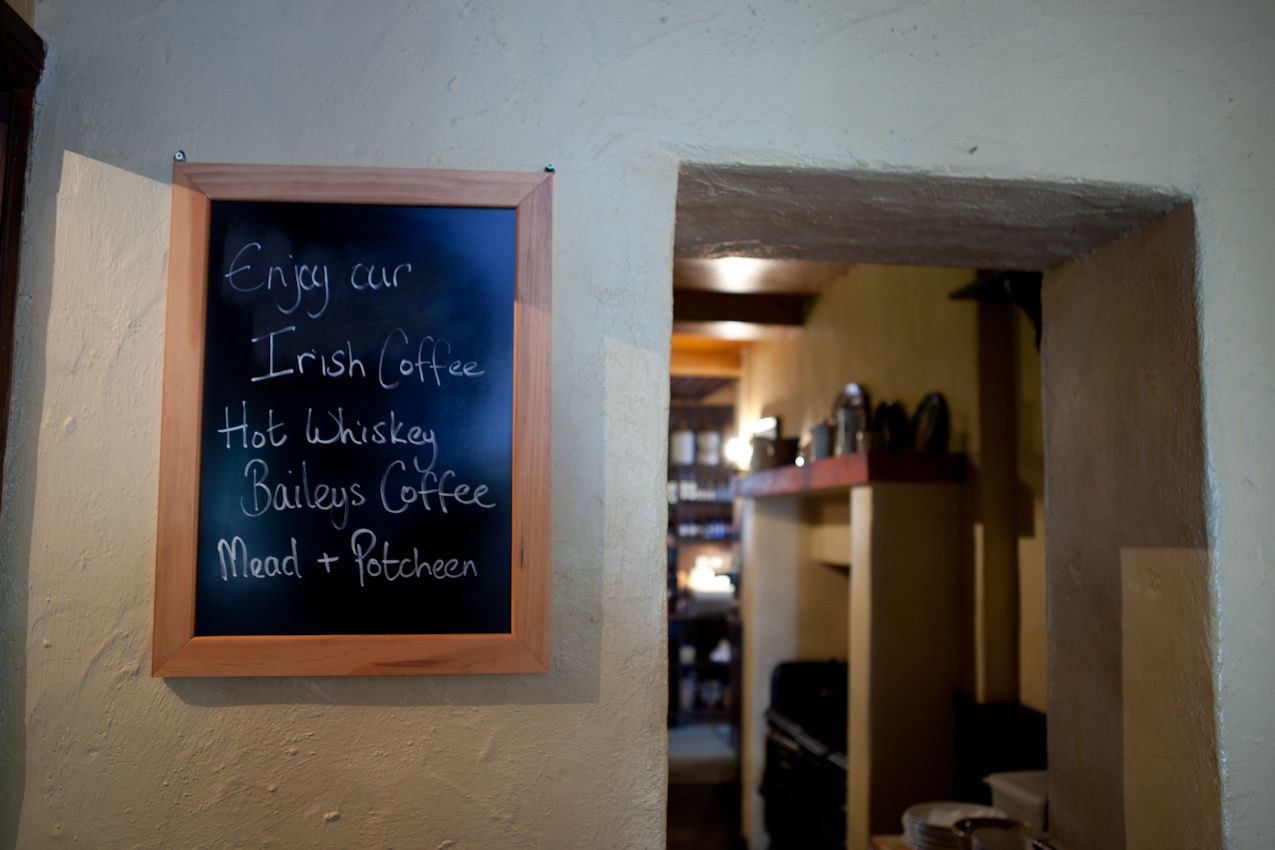 Enjoy our
Irish Coffee
Hot Whiskey
Baileys Coffee
Mead + Potcheen